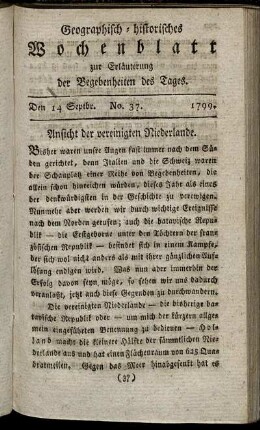 Geographisch-historisches
Wochenblatt
zur Erläuterung
der Begebenheiten des Tages.
Den 14 Septbr. No. 37. 1799.
Ansicht der vereinigten Niederlande.
Bisher waren unsre Augen fast immer nach dem Sü-
den gerichtet, denn Italien und die Schweiz waren
der Schauplatz einer Reihe von Begebenheiten, die
allein schon hinreichen würden, dieses Jahr als eines
der denkwürdigsten in der Geschichte zu verewigen.
Nunmehr aber werden wir durch wichtige Ereignisse
nach dem Norden gerufen; auch die batavische Repu-
blik — die Erstgeborne unter den Töchtern der fran-
zösischen Republik — befindet sich in einem Kampfe,
der sich wol nicht anders als mit ihrer gänzlichen Auf-
lösung endigen wird. Was nun aber immerhin der
Erfolg davon seyn möge, so sehen wir uns dadurch
veranlaßt, jetzt auch diese Gegenden zu durchwandern.
Die vereinigten Niederlande — die bisherige ba-
tavische Republik oder — um mich der kürzern allge-
mein eingeführten Benennung zu bedienen — Hol-
land macht die kleinere Hälfte der sämmtlichen Nie-
derlande aus und hat einen Flächenraum von 625 Qua-
dratmeilen. Gegen das Meer hinabgesenkt hat es
(37)